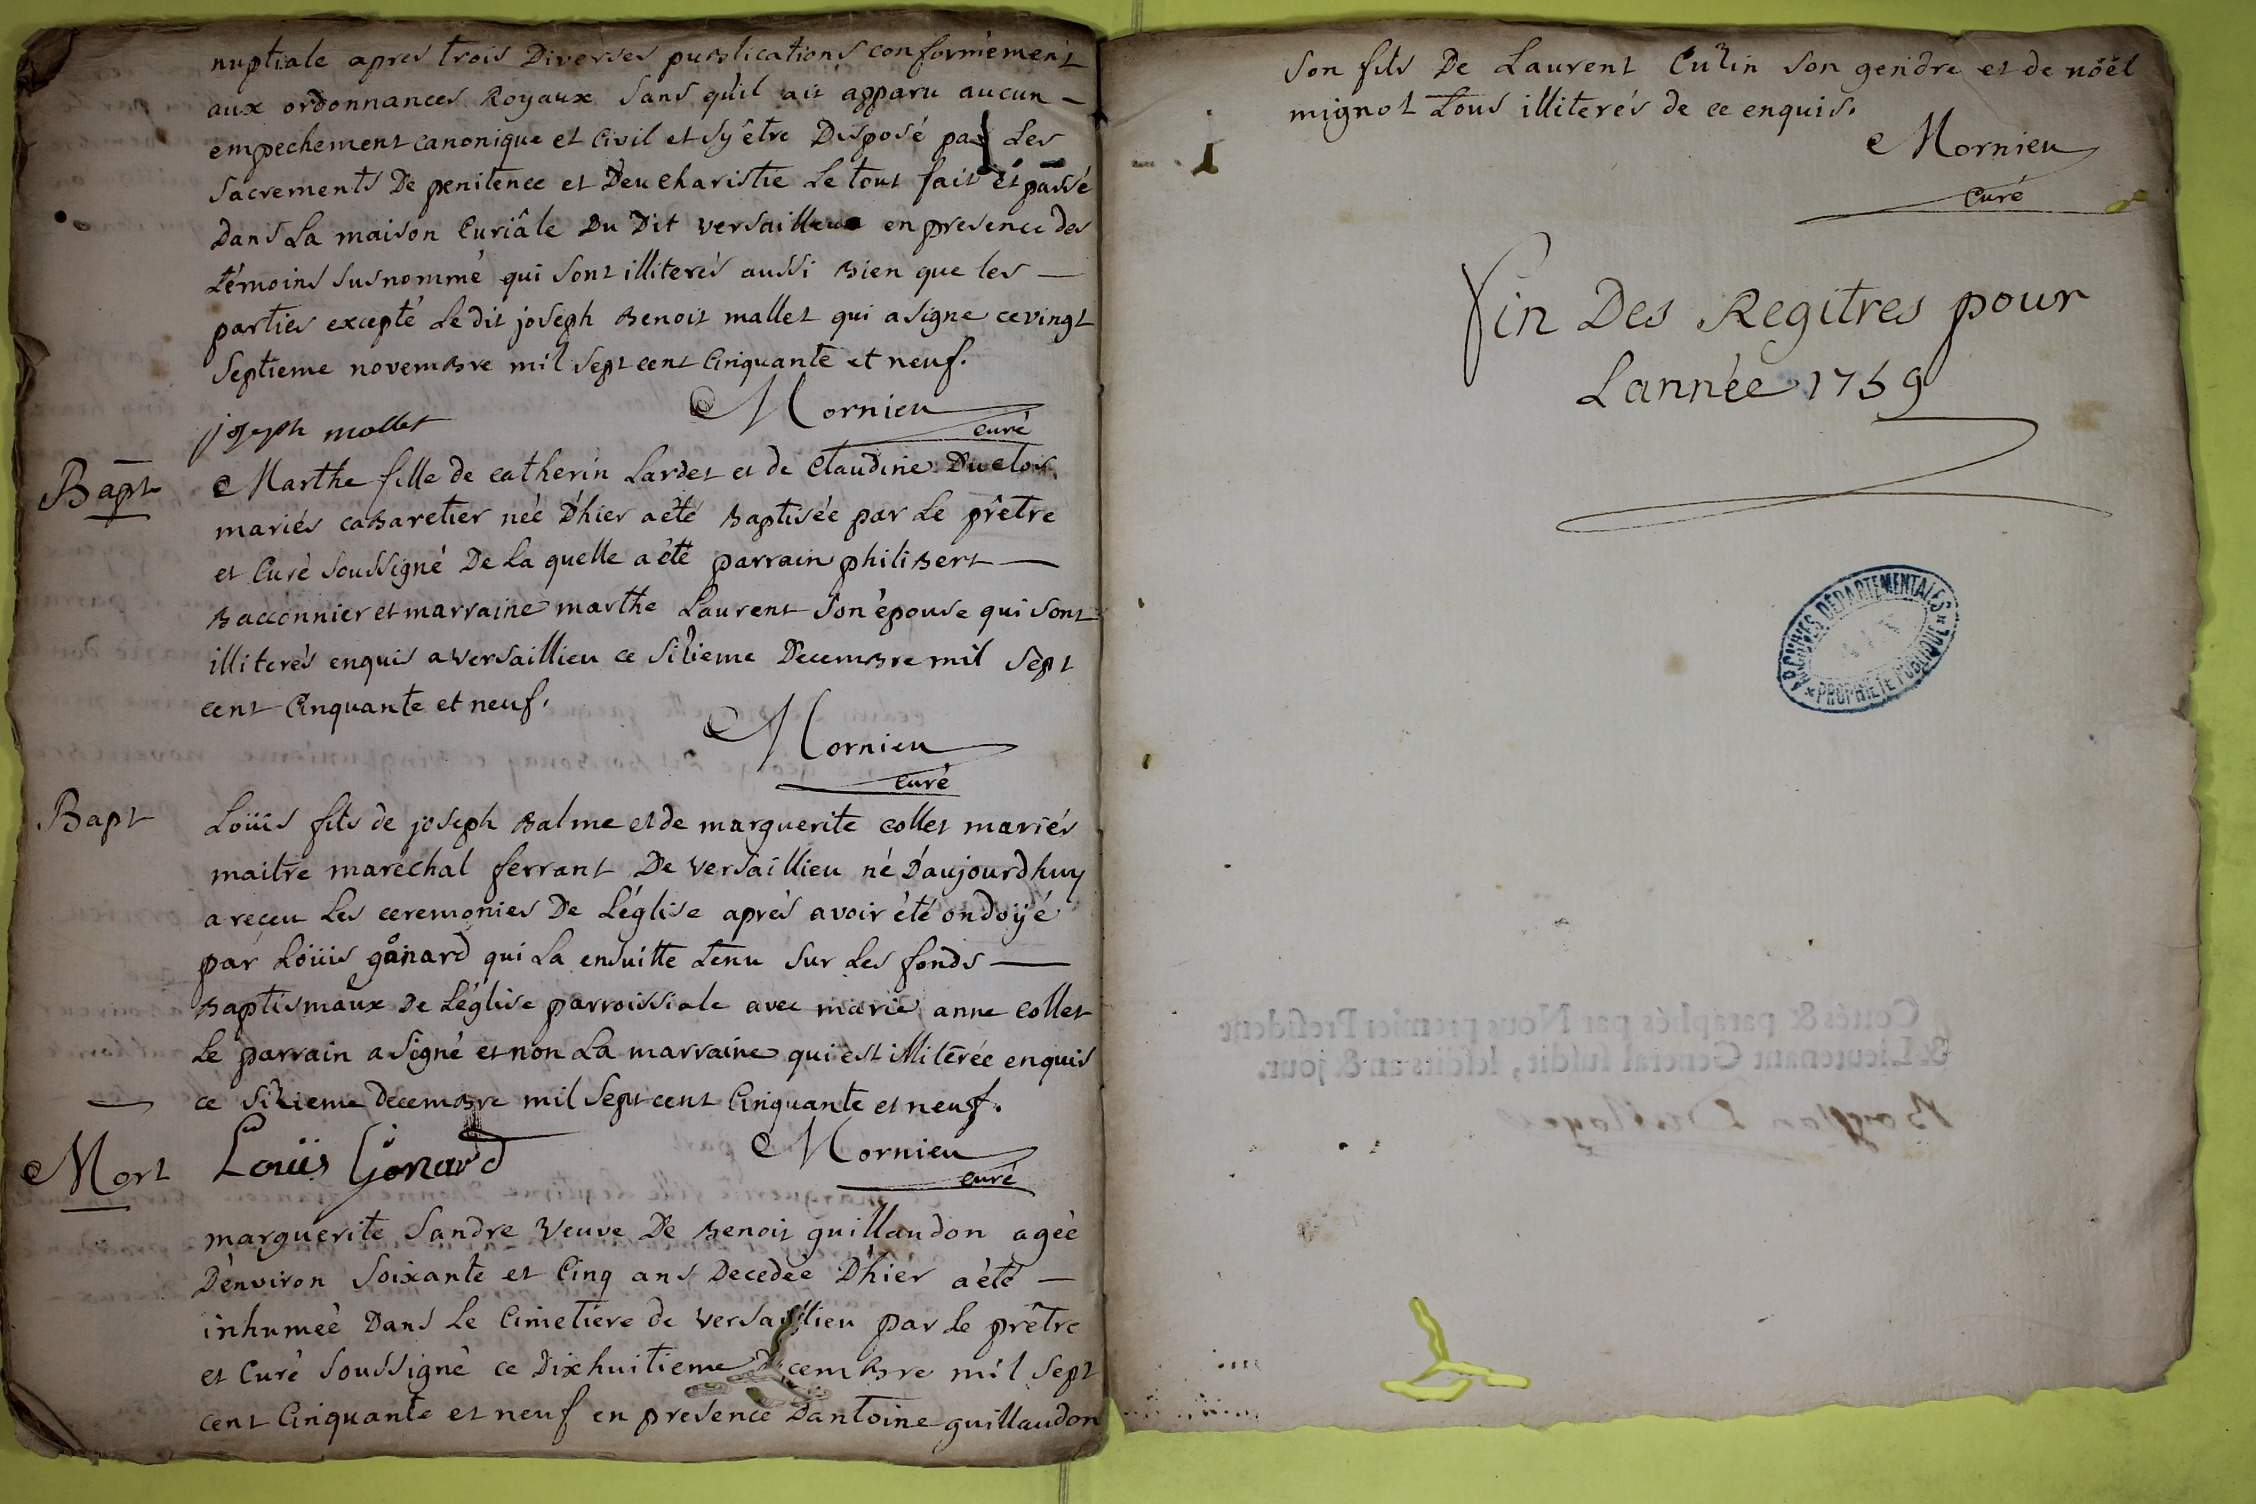 nuptiale apres trois Diverses publications conformément
aux ordonnances Royaux sans qu'il ait apparu aucun -
empechement canonique et Civil et sy être Disposé par Les
sacrements De penitence et Deucharistie Le tout fait et passé
Dans La maison Curiâle Du Dit versaillieu en presence des
témoins susnommé qui sont illiterés aussi Bien que les -
parties excepté Ledit joseph Benoit mallet qui a signe ce vingt
septieme novembre mil sept cent Cinquante et neuf.
joseph mallet
Mornieu
curé
Bapt
Marthe fille de catherin Lardet et de Claudine Duclos
mariés cabaretier née D'hier a été Baptisée par Le prêtre
et Curé soussigné De La quelle a été parrain philibert -
Bacconnier et marraine marthe Laurent son épouse qui sont
illiterés enquis a versaillieu ce sizieme Decembre mil sept
cent Cinquante et neuf.
Mornieu
curé
Bapt
Loüis fils de joseph Balme et de marguerite collet mariés
maitre maréchal ferrant De versaillieu né D'aujourdhuy
a reçeu Les ceremonies De L'église aprés avoir été ondoÿé
par Loüis gonard qui La ensuitte tenu sur Les fonds -
Baptismaux De L'église parroissiale avec marie anne Collet
Le parrain a signé et non La marraine qui est illiterée enquis
ce sizieme Decembre mil sept cent Cinquante et neuf.
Loüis Gonard
Mornieu
curé
Mort
marguerite sandre veuve De Benoit guillaudon agée
D'environ soixante et Cinq ans Decedée D'hier a été -
inhumeé Dans Le Cimetiére de versaillieu par Le prêtre
et Curé soussigné ce Dixhuitieme Decembre mil sept
cent Cinquante et neuf en presence Dantoine guillaudon
son fils De Laurent Cuzin son gendre et de nöel
mignot tous illiterés de ce enquis.
Mornieu
Curé
Fin Des Regitres pour
Lannée 1759
ARCHIVES DÉPARTEMENTALES
PROPRIÉTÉ PUBLIQUE
Cottés & paraphés par Nous premier President
& Lieutenant General susdit, lesdits an & jour.